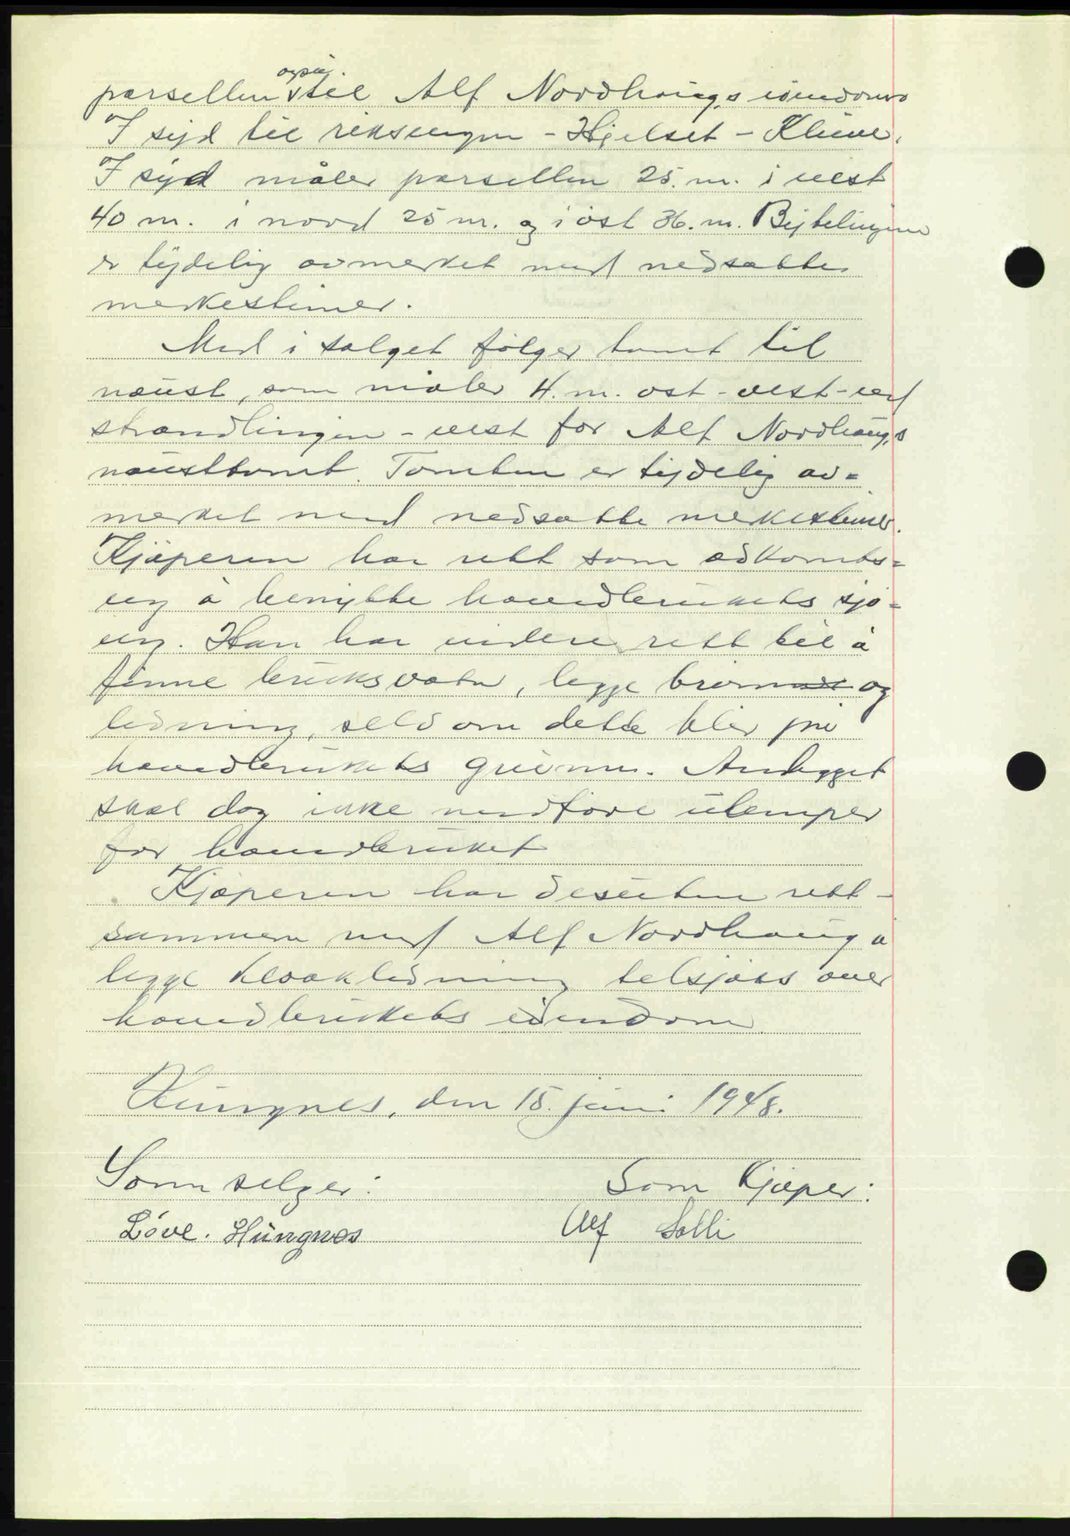 parsellen også til Alf Nordhaug,s eiendom
I syd til riksvegen - Hjelset - Kleive.
I syd måler parsellen 25. m. i vest
40 m. i nord 25 m. og i øst 36. m. Bytelinjene
er tydelig avmerket med nedsatte
merkesteiner.
Med i salget følger tomt til
naust, som måler 4. m. øst - vest - ved
strandlinjen - vest for Alf Nordhaug,s
nausttomt. Tomten er tydelig av=
merket med nedsatte merkesteiner.
Kjøperen har rett som adkomts=
veg å benytte hovedbrukets sjø=
veg. Han har videre rett til å
finne bruksvatn, legge brønn og
ledning, selv om dette blir på
hovedbrukets grunn. Anlegget
skal dog ikke medføre ulemper
for hovedbruket
Kjøperen har desuten rett -
sammen med Alf Nordhaug å
legge kloakledning tilsjøss over
hovedbrukets eiendom.
Hungnes, den 15. juni 1948.
Som selger: Som Kjøper:
Løve. Hungnes Alf Solli